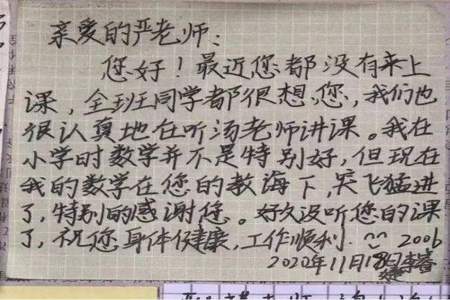 亲爱的严老师:
您好!最近您都没有来上
课,全班同学都很想您,我们也
很认真地在听汤老师讲课。我在
小学时数学并不是特别好,但现在
我的数学在您的教诲下,突飞猛进
了,特别的感谢您。好久没听您的课
了,祝您身体健康,工作顺利. 2006
2020年11月18日